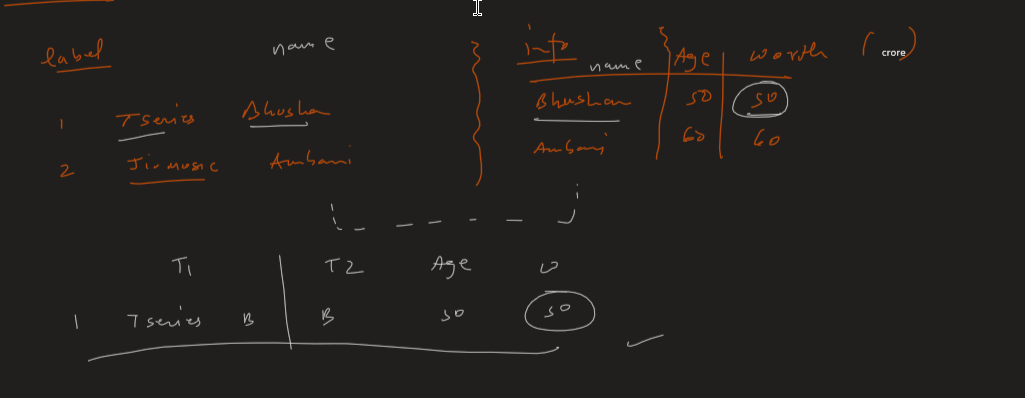 label name
1 Tseries Bhushan
2 Jiomusic Ambani
info
name Age worth (crore)
Bhushan 50 50
Ambani 60 60
T1 T2 Age w
1 Tseries B B 50 50